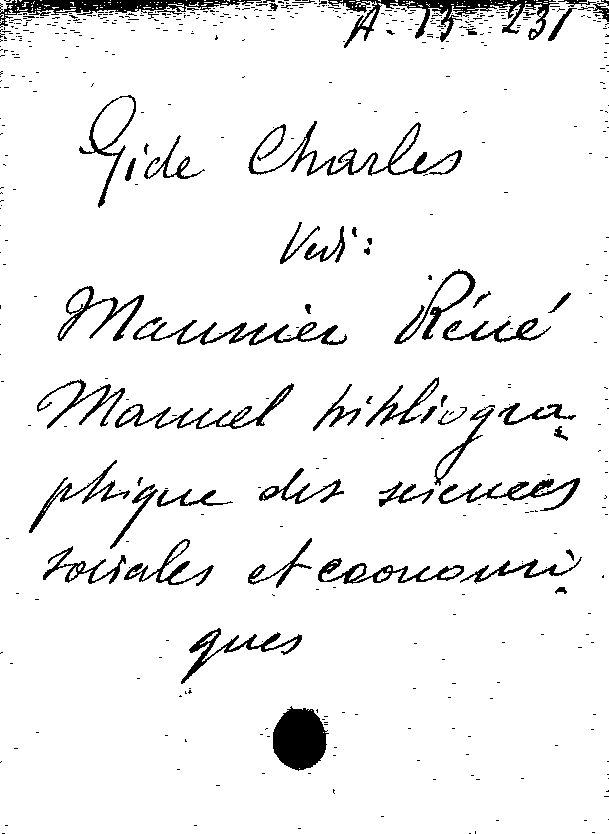 A-13-231
Gide Charles
Vedi:
Maunier Réné
Manuel bibliogra-
phique des sciences
sociales et economi-
ques